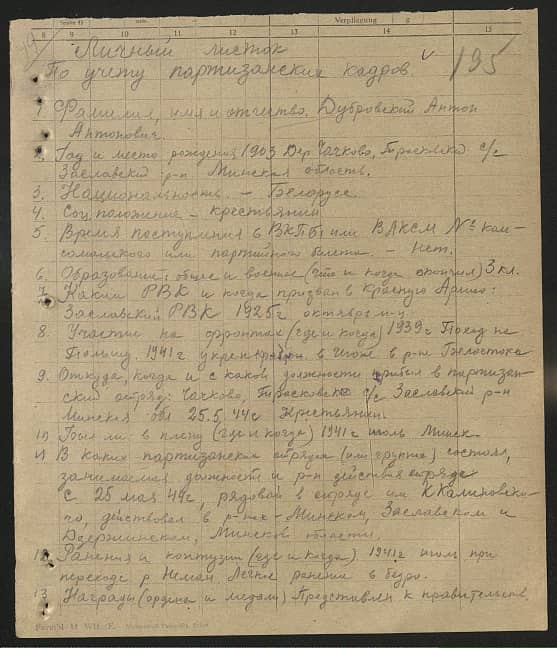 Verpflegung
8 9 10 11 12 13 14 15
Личный листок
По учету партизанских кадров.
195
1. Фамилия, имя и отчество. Дубровский Антон
Антонович
2. Год и место рождения 1903 Дер. Чачково, с/с
Заславский р-н Минская область.
3. Национальность. – Белорусс
4. Соц. положение – крестьянин
5. Время поступления в ВКП(б) или ВЛКСМ № ком-
сомольского или партийного билета. – Нет.
6. Образование: общее и военное (что и когда окончил) 3 кл.
7. Каким РВК и когда призван в Красную Армию:
Заславский РВК 1925 г октябре м-ц.
8. Участие на фронтах (где и когда) 1939 г Поход на
Польшу. 1941 г в Июле в р-не Белостока
9. Откуда, когда и с какой должности прибыл в партизан-
ский отряд: Чачково, с/с Заславский р-н
Минская обл 25.5.44 г Крестьянин.
10 Был ли в плену (где и когда) 1941 г июль Минск.
11 В каких партизанских отрядах (или группах) состоял,
занимаемая должность и р-н действия отряда
С 25 мая 44 г, рядовой в отряде им К. Калиновско-
го, действовал в р-нах – Минском, Заславском и
Дзержинском, Минской области.
12 Ранения и контузии (где и когда) 1941 г июль при
переходе р. Неман. Легкое ранение в бедро.
13 Награды (ордена и медали) Представлен к правительств.